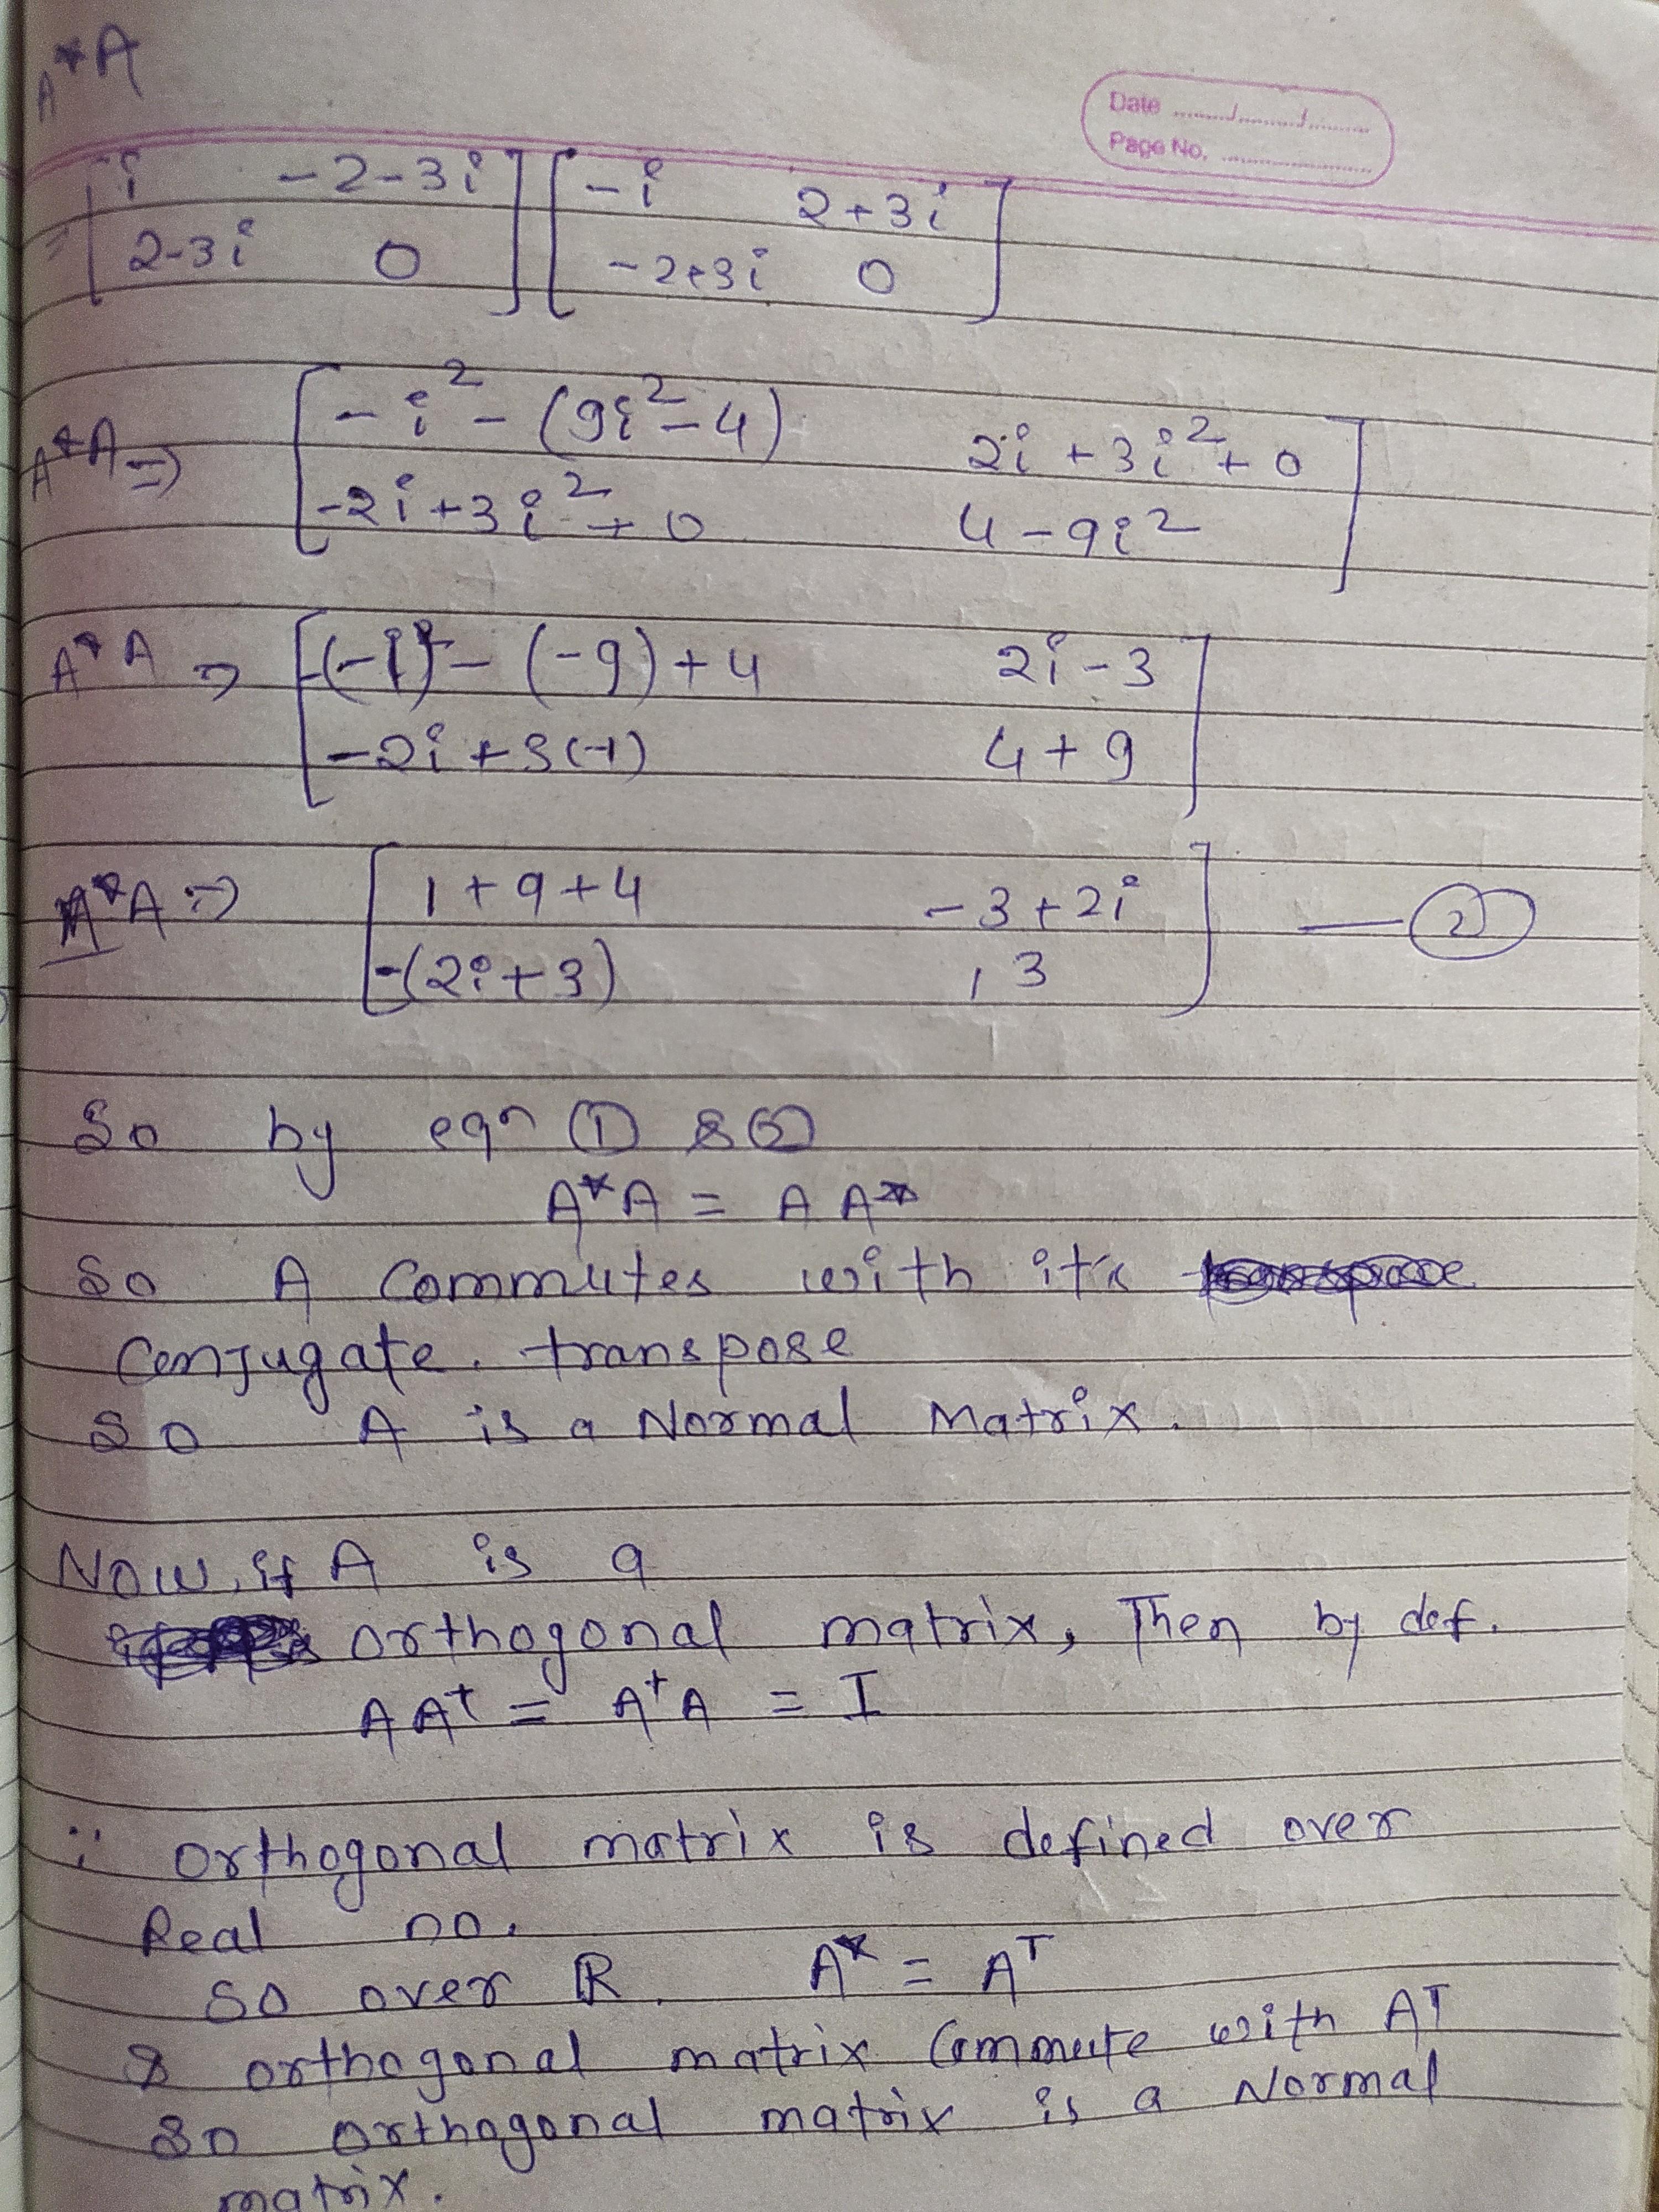 A*A
Date ......../........./.........
Page No. .......................
= [ i   -2-3i ] [ -i   2+3i ]
[ 2-3i   0 ] [ -2+3i   0 ]
A*A => [ -i² - (9i²-4)   2i+3i²+0 ]
[ -2i+3i²+0   4-9i² ]
A*A => [ -(-1) - (-9)+4   2i-3 ]
[ -2i+3(-1)   4+9 ]
A*A => [ 1+9+4   -3+2i ] — ②
[ -(2i+3)   13 ]
So by eqn ① & ②
A*A = A A*
So A Commutes with it's
Conjugate. transpose
So A is a Normal Matrix.
Now, if A is a
orthogonal matrix, Then by def.
AA^T = A^TA = I
∵ orthogonal matrix is defined over
Real no.
So over ℝ. A* = A^T
& orthogonal matrix Commute with A^T
So orthogonal matrix is a Normal
matrix.